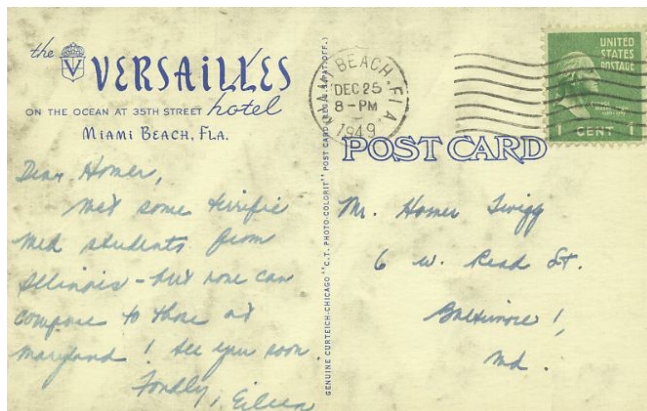 the
VERSAILLES
hotel
ON THE OCEAN AT 35TH STREET
MIAMI BEACH, FLA.
Dear Homer,
Met some terrific
med students from
Illinois - but none can
compare to those at
Maryland! See you soon.
Fondly, Eileen
GENUINE CURTEICH-CHICAGO "C.T. PHOTO-COLORIT" POST CARD (REG. U.S. PAT. OFF.)
MIAMI BEACH, FLA
DEC 25
8-PM
1949
UNITED
STATES
POSTAGE
1 CENT 1
POST CARD
Mr. Homer Twigg
6 W. Read St.
Baltimore 1,
Md.